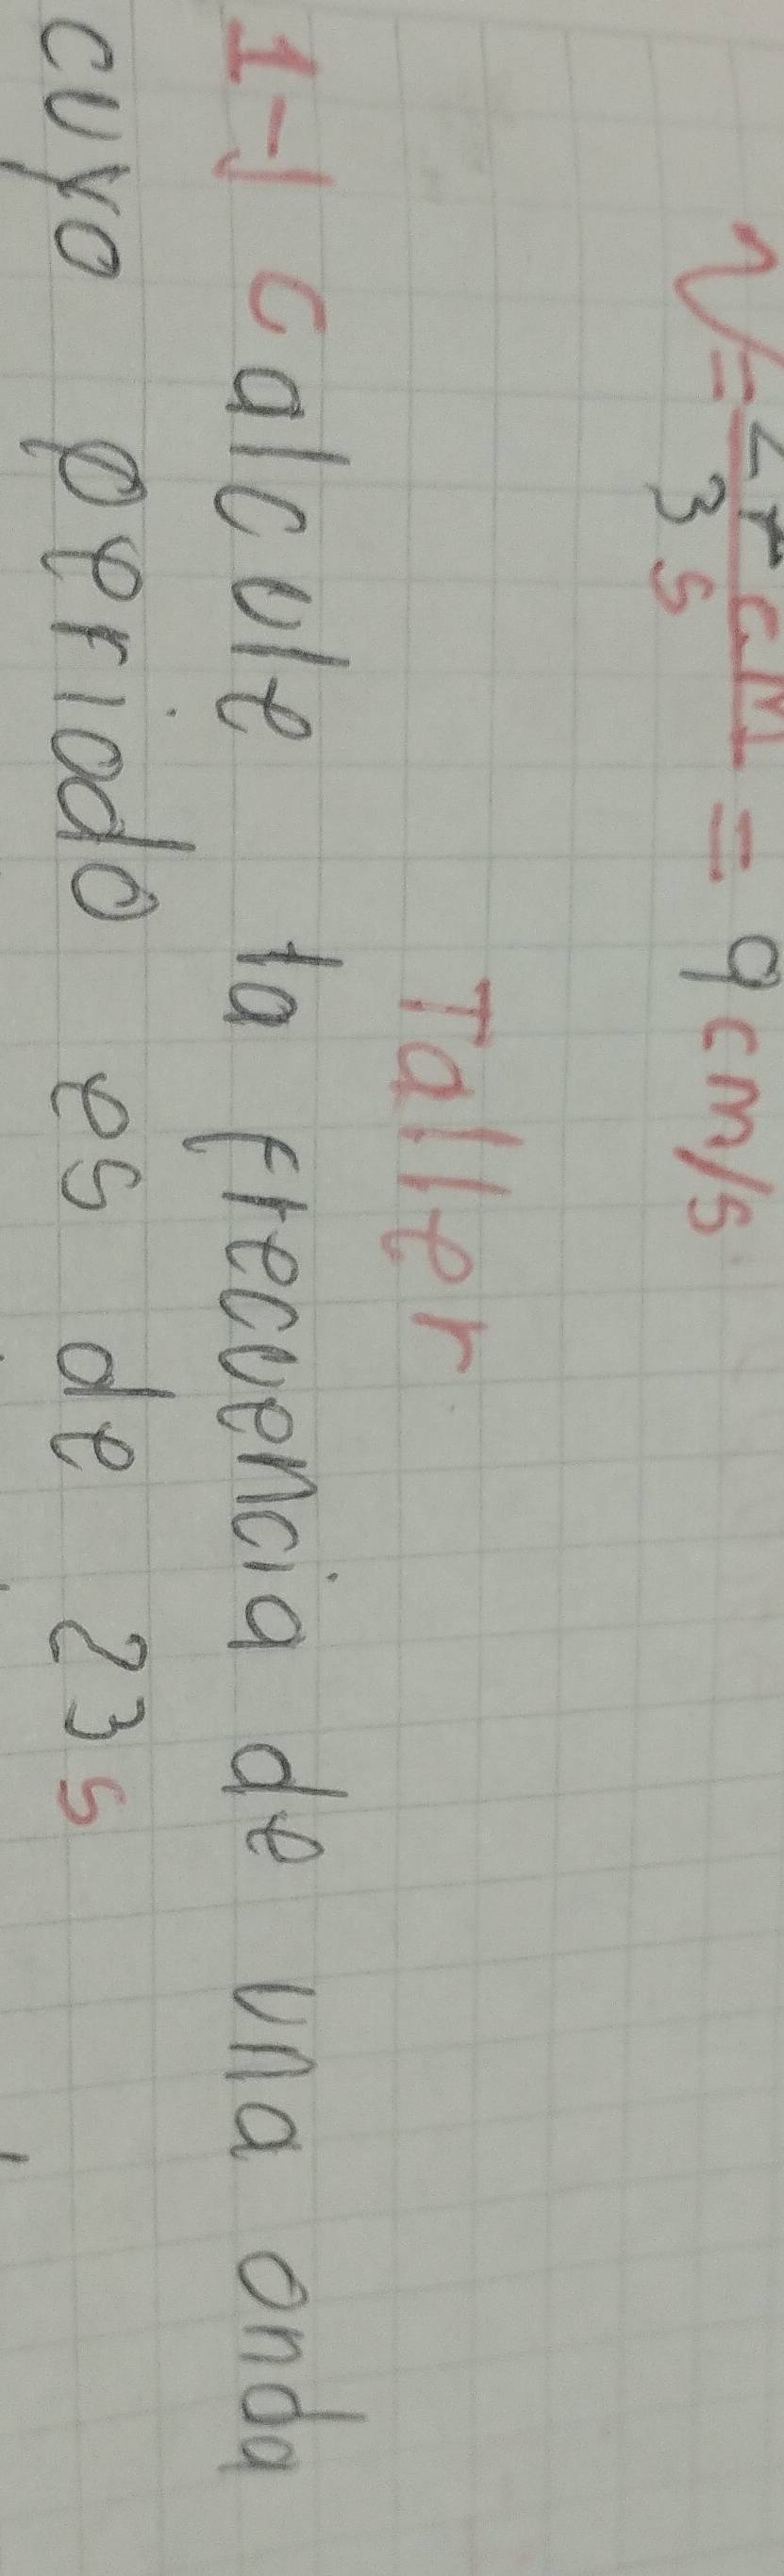 V = 27 cm / 3 s = 9 cm/s
Taller
1-) calcule la frecuencia de una onda
cuyo periodo es de 23 s